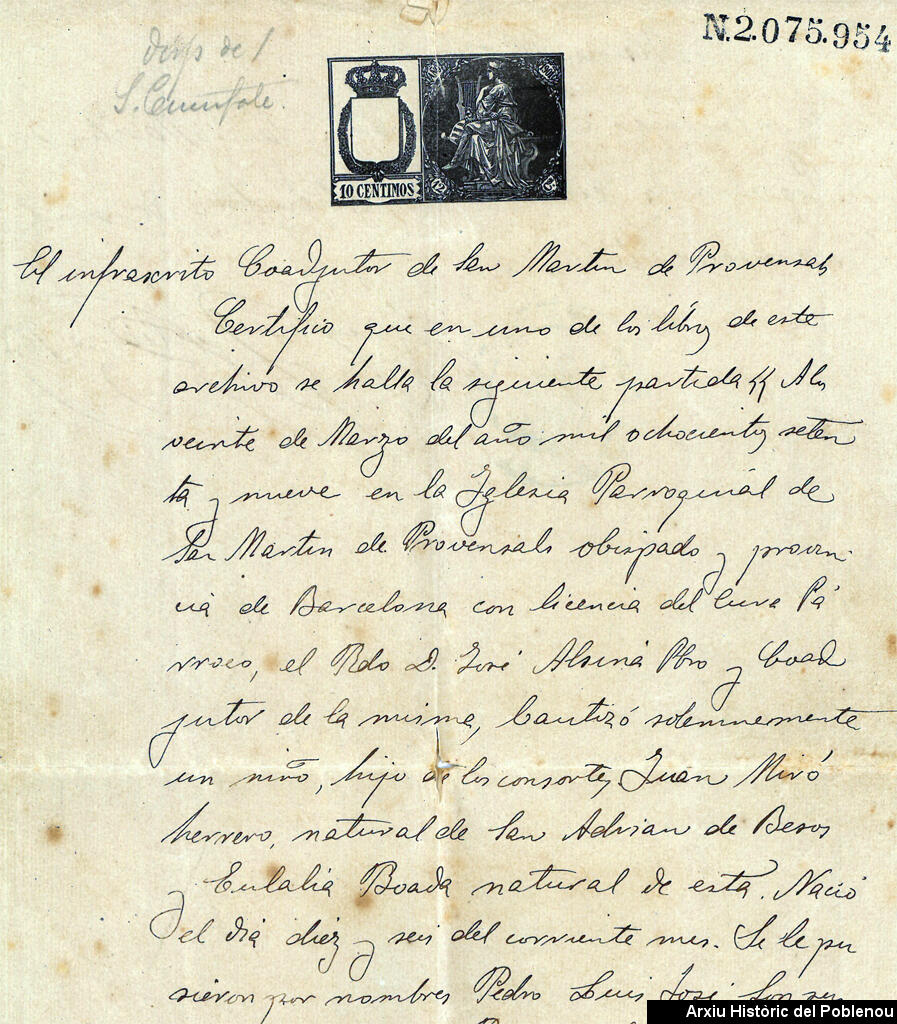 N.2.075.954
desp de l
S.
10 CENTIMOS
12ª 12ª
El infrascrito Coadjutor de San Martin de Provensals
Certifico que en uno de los libros de este
archivo se halla la siguiente partida "A los
veinte de Marzo del año mil ochocientos seten
ta y nueve en la Iglesia Parroquial de
San Martin de Provensals obispado y provin-
cia de Barcelona con licencia del Cura Pá
rroco, el Rdo D. José Alsina Pbro y Coad
jutor de la misma, bautizó solemnemente
un niño, hijo de los consortes Juan Miró
herrero, natural de San Adrian de Besos
y Eulalia Boada natural de esta. Nació
el dia diez y seis del corriente mes. Se le pu
sieron por nombres Pedro Luis José Son sus
Arxiu Històric del Poblenou